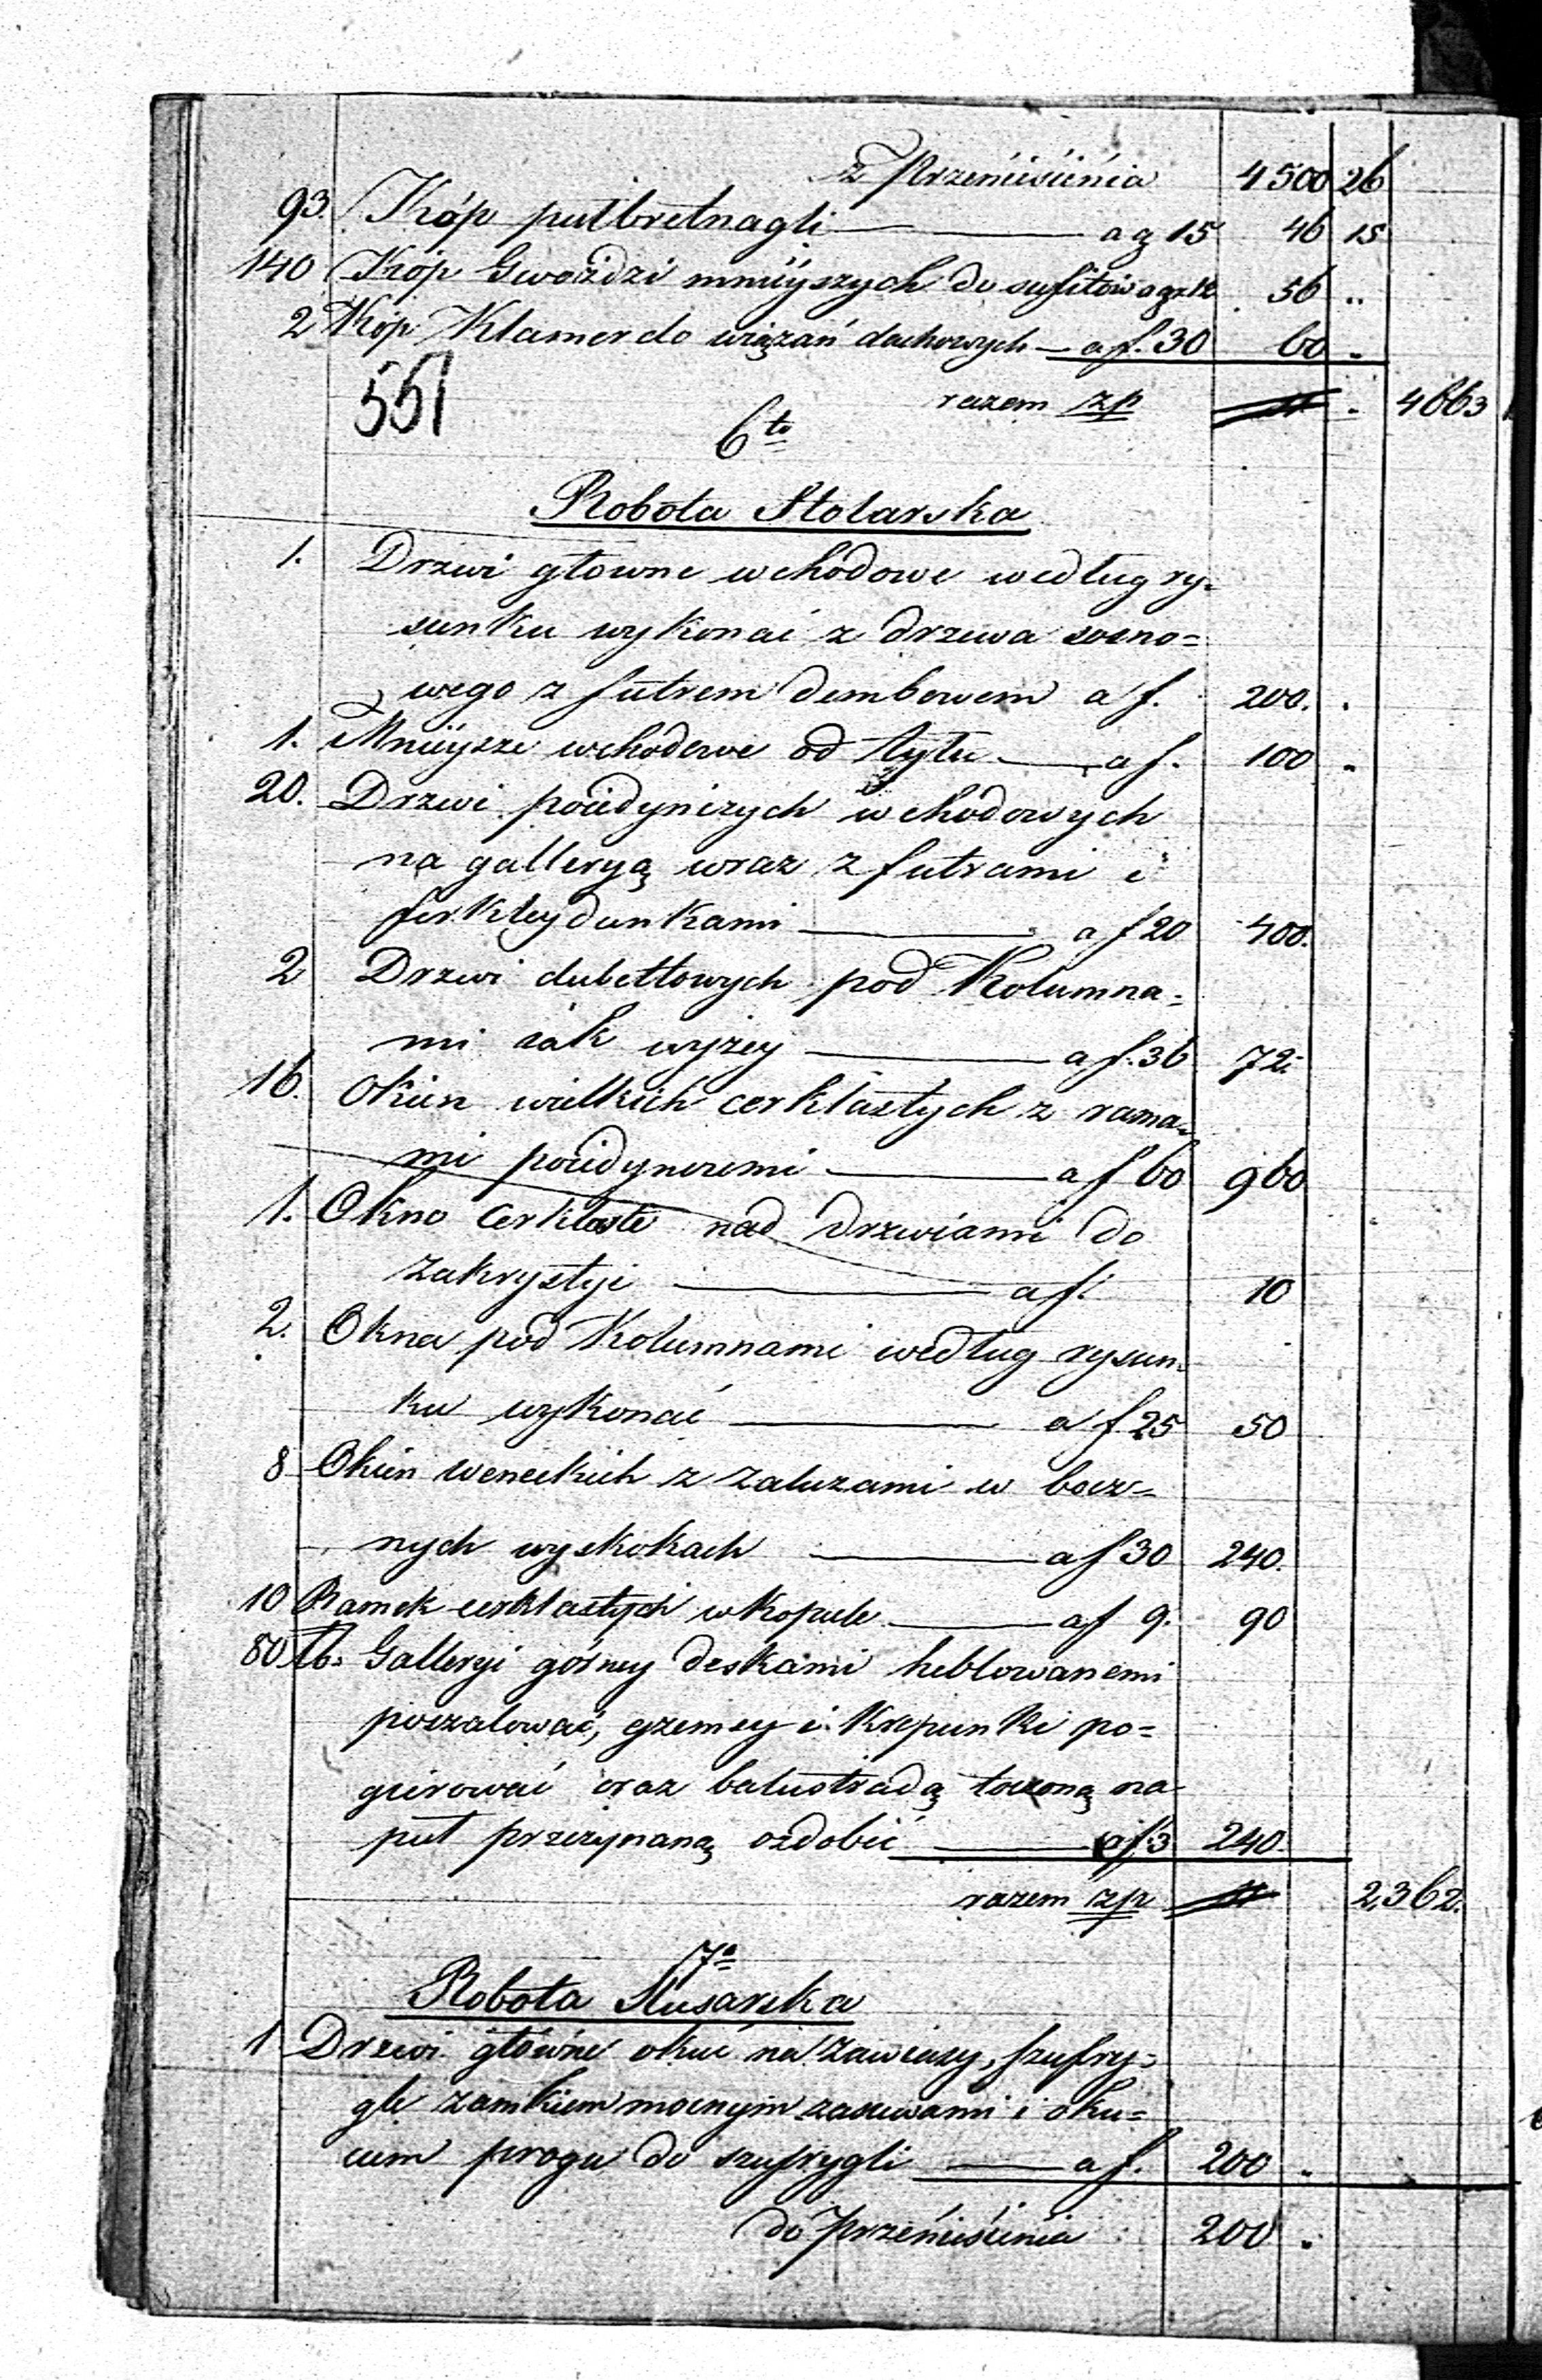 z Przeniesienia 4500 26
93. Kóp pułbretnagli a g 15 46 15
140 Kóp Gwoździ mnieyszych do sufitów a gr 12 56 ..
2 Kóp Klamer do wiązań dachowych a f. 30 60 ..
razem zp 4663
551
6to
Robota Stolarska
1. Drzwi głowne wchodowe według ry=
sunku wykonać z drzewa sosno=
wego z futrem dembowem a f. 200. .
1. Mnieysze wchodowe od tyłu a f. 100 ..
20. Drzwi poiedyńczych wchodowych
na galleryą wraz z futrami i
ferkleydunkami a f 20 400.
2 Drzwi dubeltowych pod Kolumna=
mi iak wyżey a f. 36 72.
16. Okien wielkich cerklastych z rama=
mi poiedynczemi a f 60 960
1. Okno Cerklaste nad Drzwiami do
Zakrystyi a f. 10
2. Okna pod Kolumnami według rysun=
ku wykonać a f 25 50
8 Okien weneckich z Zaluzami w bocz=
nych wyskokach a f 30 240.
10 Ramek cerklastych w Kopule a f 9. 90
80 Galleryi górney deskami heblowanemi
poszalować, gzemsy i Krepunki po=
gierować oraz balustradą toczoną na
puł przerzynaną ozdobić a f. 3 240.
razem zp 2,362.
7o
Robota Slusarska
1 Drzwi główne okuć na zawiasy, szufry=
gle zamkiem mocnym zasuwami i oku=
ciem progu do szufrygli a f. 200 ..
do przeniesienia 200 ..